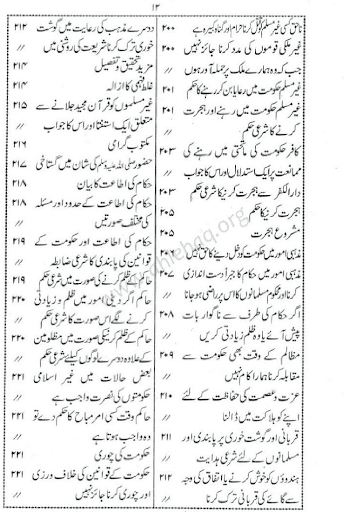 ۱۲
ناحق کسی غیر مسلم کو قتل کرنا حرام اور گناہ کبیرہ ہے ۲۰۰
غیر ملکی قوموں کی مدد کرنا جائز نہیں ۲۰۰
جب کہ وہ ہمارے ملک پر حملہ آور ہوں //
غیر مسلم حکومت میں رعایا بن کر رہنے کا حکم ۲۰۱
غیر مسلم حکومت میں رہنے اور ہجرت ۲۰۱
کرنے کا شرعی حکم //
کافر حکومت کی ماتحتی میں رہنے کی ۲۰۳
ممانعت پر ایک استدلال اور اس کا جواب //
دارالکفر سے ہجرت کرنے کا حکم ۲۰۳
ہجرت کرنے کا حکم ۲۰۵
مشروع ہجرت ۲۰۵
مذہبی امور میں حکومت کو دخل دینے کا حق نہیں //
مذہبی امور میں حکام کا جبراً دست اندازی ۲۰۷
کرنا اور محکوم مسلمانوں کا اس پر راضی ہو جانا //
اگر حکام کی طرف سے ناگوار بات ۲۰۸
پیش آئے یا وہ ظلم زیادتی کریں //
مظالم کے وقت بھی حکومت سے ۲۰۹
مقابلہ کرنا ہمارا کام نہیں //
عزت و عصمت کی حفاظت کے لئے ۲۱۰
اپنے کو ہلاکت میں ڈالنا //
قربانی اور گوشت خوری پر پابندی اور ۲۱۱
مسلمانوں کے لئے شرعی ہدایت //
ہندوؤں کو خوش کرنے یا اتفاق کی وجہ ۲۱۲
سے گائے کی قربانی ترک کرنا //
دوسرے مذہب کی رعایت میں گوشت ۲۱۲
خوری ترک کرنا شریعت کی روشنی میں //
مزید تحقیق و تفصیل ۲۱۴
غلط فہمی کا ازالہ ۲۱۴
غیر مسلموں کو قرآن مجید جلانے سے ۲۱۵
متعلق ایک استفتا اور اس کا جواب //
مکتوب گرامی ۲۱۶
حضور صلی اللہ علیہ وسلم کی شان میں گستاخی ۲۱۷
حکام کی اطاعت کا بیان ۲۱۸
حکام کی اطاعت کے حدود اور مسئلہ ۲۱۸
کی مختلف صورتیں //
حکام کی اطاعت اور حکومت کے ۲۱۹
قوانین کی پابندی کا شرعی ضابطہ //
حاکم کے ظلم کرنے کی صورت میں شرعی حکم ۲۱۹
حاکم اگر دینی امور میں ظلم و زیادتی ۲۲۰
کرنے لگے اس کا شرعی حکم //
حاکم کے ظلم کرنے کی صورت میں مظلومین ۲۲۰
کے علاوہ دوسرے لوگوں کیلئے شرعی حکم //
بعض حالات میں غیر اسلامی ۲۲۱
حکومتوں کی نصرت واجب ہے //
حاکم وقت کسی امر مباح کا حکم دے تو ۲۲۱
وہ واجب ہو جاتا ہے //
حکومت کی چوری ۲۲۱
حکومت کے قوانین کی خلاف ورزی ۲۲۱
اور چوری کرنا جائز نہیں //